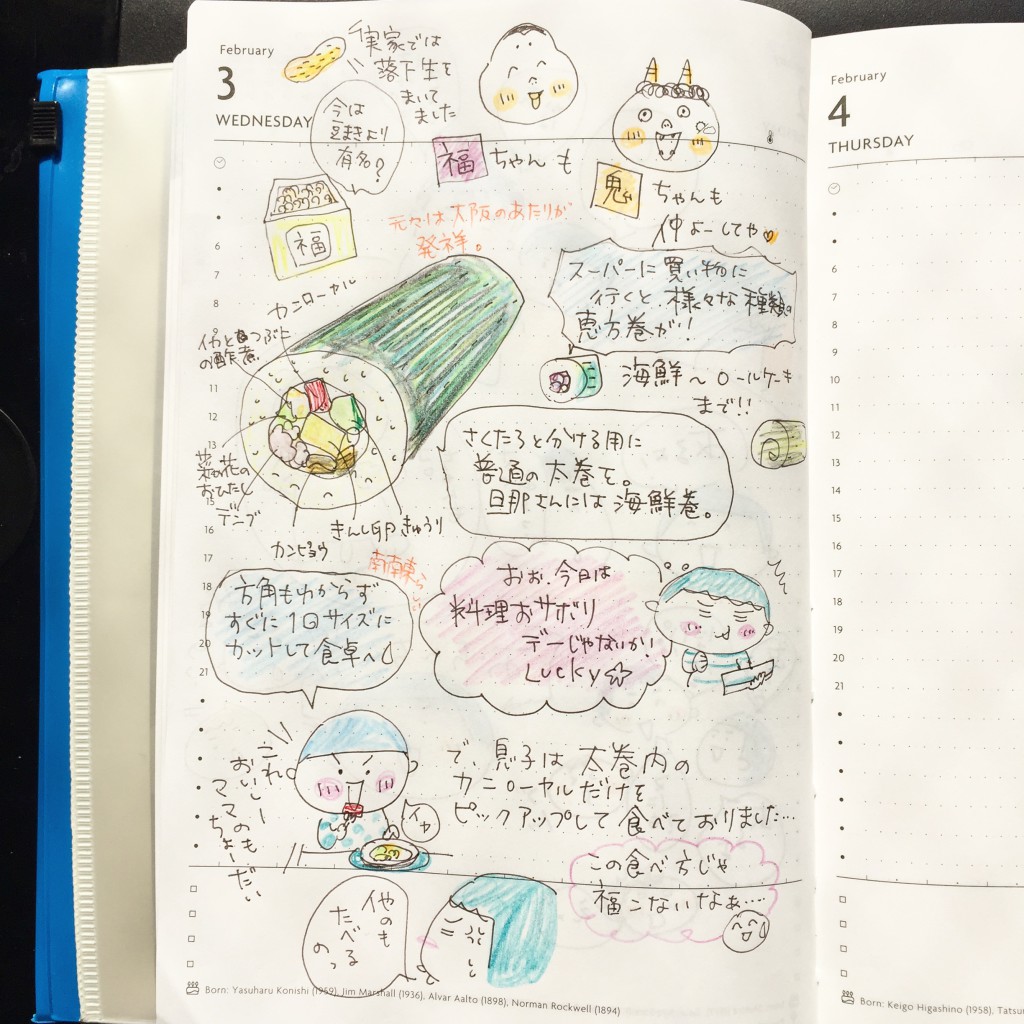 February
3
WEDNESDAY
実家では
落下生を
まいて
ました
今は
豆まきより
有名?
福
福ちゃんも
鬼ちゃんも
仲よーしてや
元々は大阪のあたりが
発祥。
スーパーに買い物に
行くと、様々な種類の
恵方巻が!
海鮮〜ロールケーキ
まで!!
カニローヤル
の酢煮
菜の花の
おひたし
デンブ
カンピョウ
きんし卵
きゅうり
さくたろと分ける用に
普通の太巻を。
旦那さんには海鮮巻。
南南東らしい
方角もわからず
すぐに1口サイズに
カットして食卓へ
おお、今日は
料理おサボリ
デーじゃないか!
Lucky☆
これ
おいしー
ママのも
ちょーだい
イヤ
で、息子は太巻内の
カニローヤルだけを
ピックアップして食べておりました…
この食べ方じゃ
福こないなぁ…
やのも
たべる
のっ
6
7
8
9
11
12
13
15
16
17
18
19
20
21
Born: Yasuharu Konishi (1959), Jim Marshall (1936), Alvar Aalto (1898), Norman Rockwell (1894)
February
4
THURSDAY
6
7
8
9
10
11
12
13
14
15
16
17
18
19
20
21
Born: Keigo Higashino (1958),